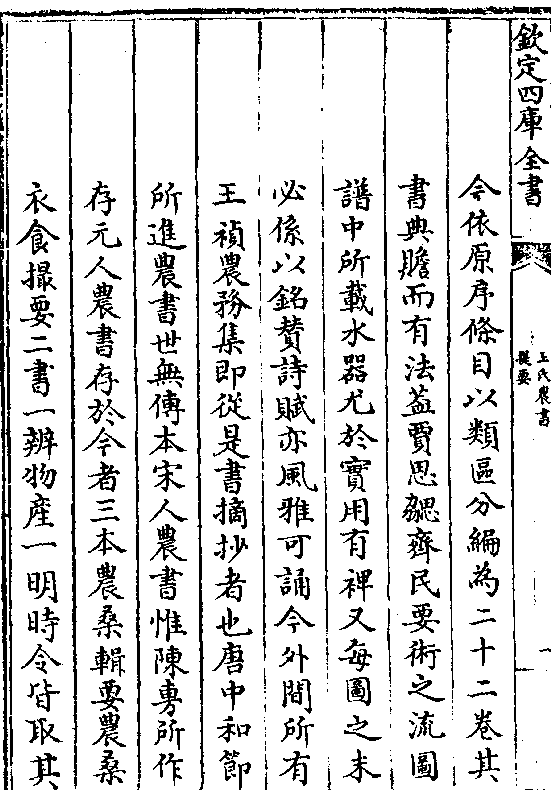 欽定四庫全書
王氏農書
提要
今依原序條目以類區分編為二十二卷其
書典贍而有法葢賈思勰齊民要術之流圖
譜中所載水器尤於實用有裨又每圖之末
必係以銘賛詩賦亦風雅可誦今外間所有
王禎農務集即從是書摘抄者也唐中和節
所進農書世無傳本宋人農書惟陳旉所作
存元人農書存於今者三本農桑輯要農桑
衣食撮要二書一辨物産一明時令皆取其